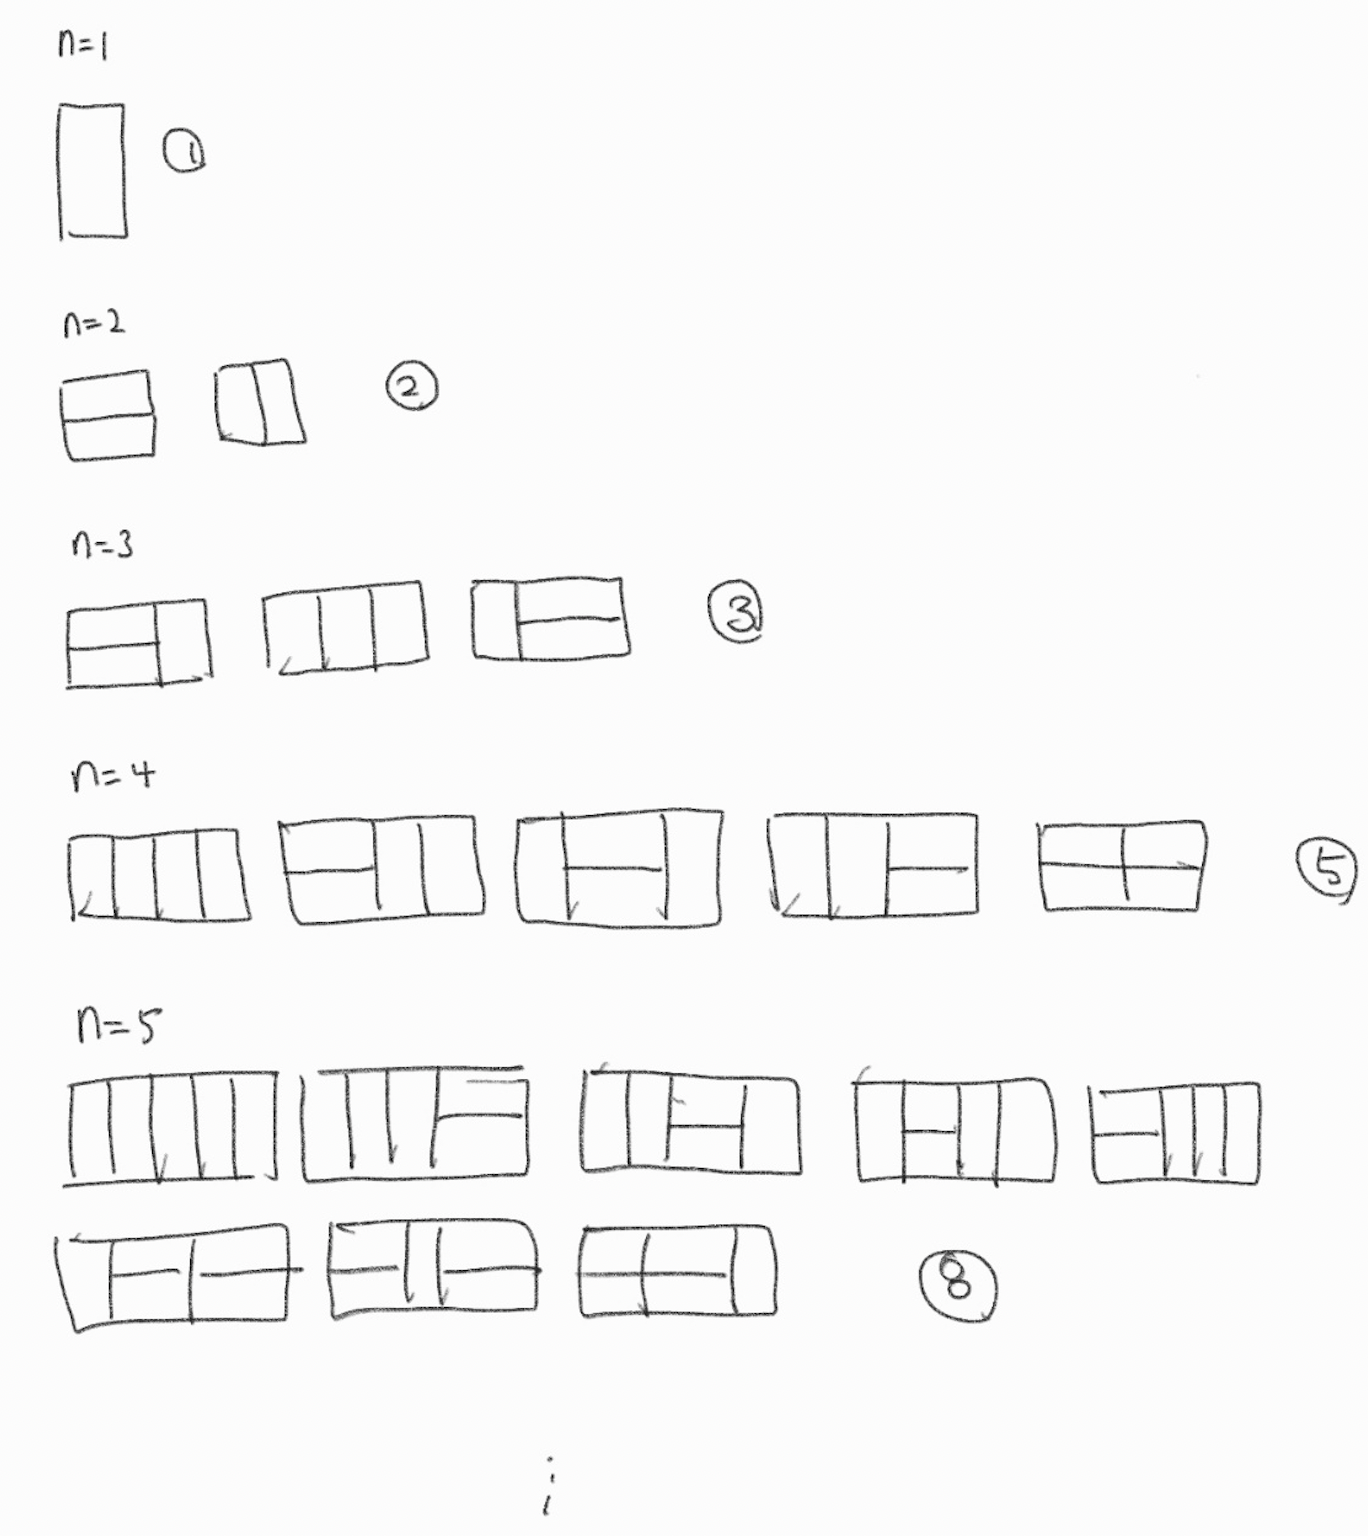 n=1
①
n=2
②
n=3
③
n=4
⑤
n=5
⑧
⋮